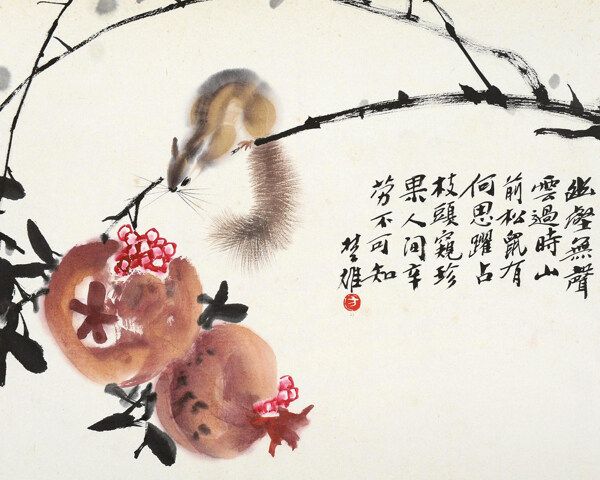 幽壑無聲
雲過時山
前松鼠有
何思躍占
枝頭窺珍
果人间辛
劳不可知
楚雄